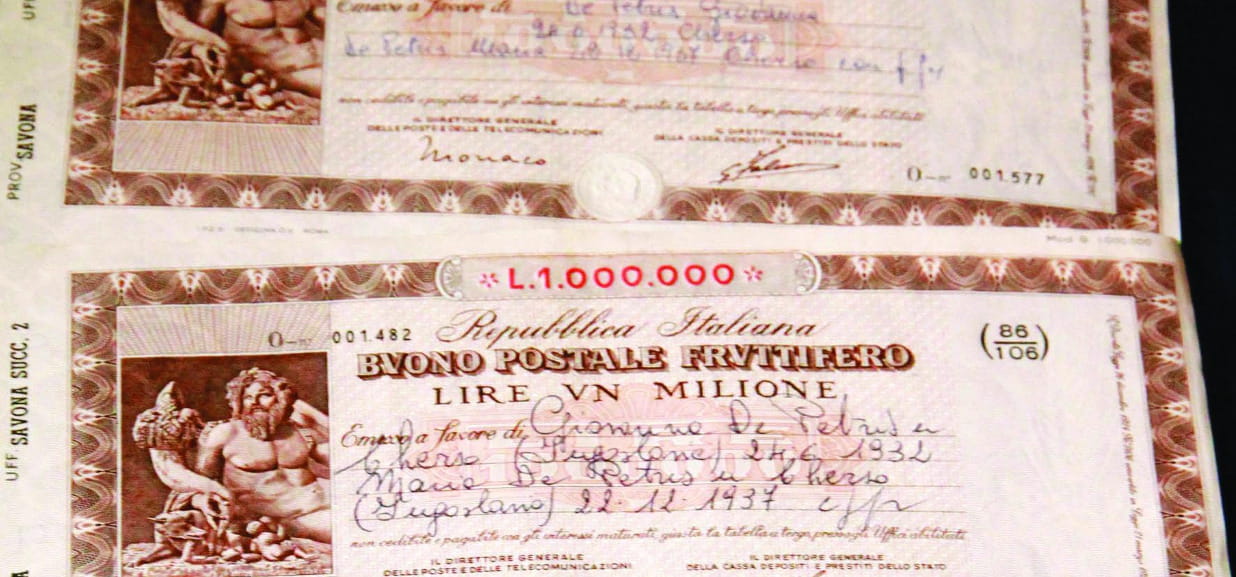 Emesso a favore di De Petris Giovanna
1932 Cherso
De Petris Maria
non cedibile e pagabile con gli interessi maturati, giusta la tabella a tergo, presso gli Uffici abilitati
IL DIRETTORE GENERALE
DELLE POSTE E DELLE TELECOMUNICAZIONI
IL DIRETTORE GENERALE
DELLA CASSA DEPOSITI E PRESTITI DELLO STATO
Monaco
O-N° 001.577
PROV SAVONA
I.P.Z.S. OFFICINA C.V. ROMA
Mod. B 1.000.000
* L.1.000.000 *
O-N° 001.482
Repubblica Italiana
(86/106)
BVONO POSTALE FRVTTIFERO
LIRE VN MILIONE
Emesso a favore di Giovanna De Petris in
Cherso (Jugoslavia) 24.6 1932
Maria De Petris in Cherso
(Jugoslavia) 22.12.1937
non cedibile e pagabile con gli interessi maturati, giusta la tabella a tergo, presso gli Uffici abilitati
IL DIRETTORE GENERALE
DELLE POSTE E DELLE TELECOMUNICAZIONI
IL DIRETTORE GENERALE
DELLA CASSA DEPOSITI E PRESTITI DELLO STATO
UFF. SAVONA SUCC, 2